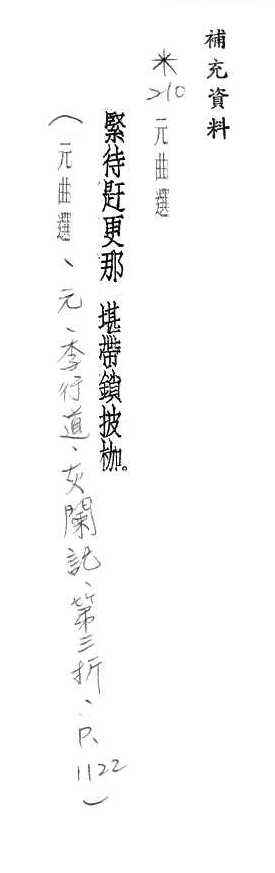 補充資料
＊210 元曲選
緊待赶更那 堪帶鎖披枷。
（元曲選、元、李行道、灰闌記、第三折、P. 1122）